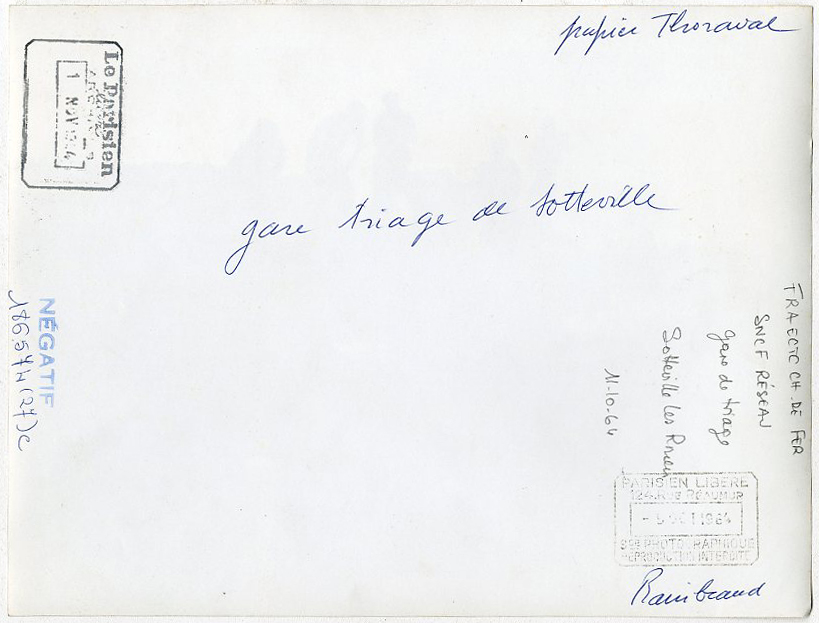 papier Thoraval
Le Parisien
1 NOV 1964
gare triage de Sotteville
NÉGATIF
18657N(27)C
TRAECTC CH. DE FER
SNCF RÉSEAU
gare de triage
Sotteville les Rouen
11-10-64
PARISIEN LIBERE
124, RUE REAUMUR
- 5 OCT 1964
SCE PHOTOGRAPHIQUE
REPRODUCTION INTERDITE
Raimbeaud